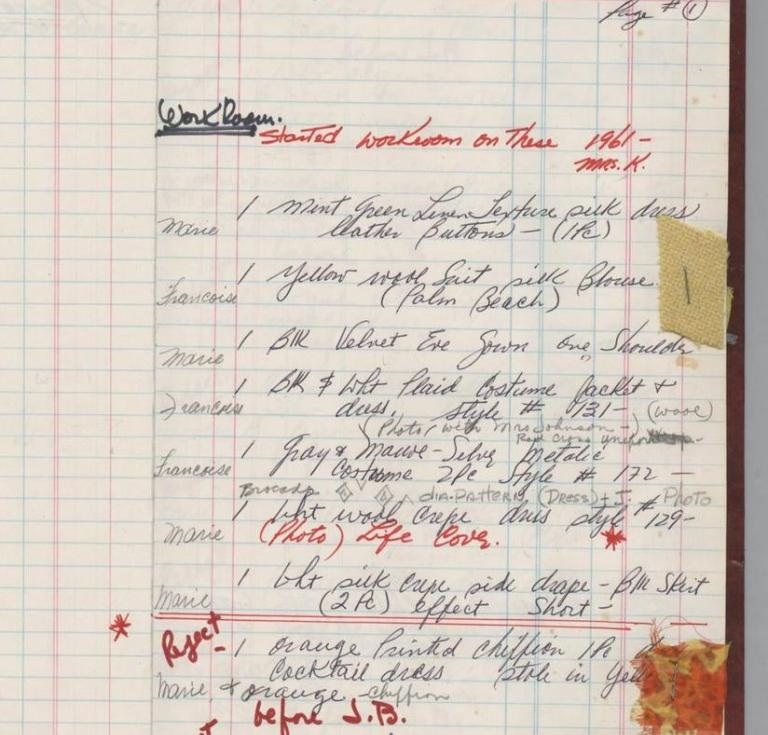 Page # 1
WorkRoom.
Started workroom on These 1961-
Mrs. K.
1 Mint Green Linen Texture silk dress
Marie leather Buttons - (1Pc)
1 Yellow wool Suit silk Blouse
Francoise (Palm Beach)
1 Blk Velvet Eve Gown One Shoulder
Marie
1 Blk & Wht Plaid Costume Jacket &
Francoise dress, style # 131- (wool)
(Photo, with Mrs Johnson-)
Red Cross
1 Gray & Mauve-Silver Metalic
Francoise Costume 2Pc Style # 172 -
Brocade dia-Pattern (Dress) + J. Photo
1 Wht wool crepe dress style # 129-
Marie (Photo) Life Cover. *
1 Wht silk crepe side drape - Blk Skirt
Marie (2Pc) effect Short -
* Reject - 1 orange Printed chiffion 1Pc
Cocktail dress Stole in
Marie & orange - chiffion
before J.B.
1